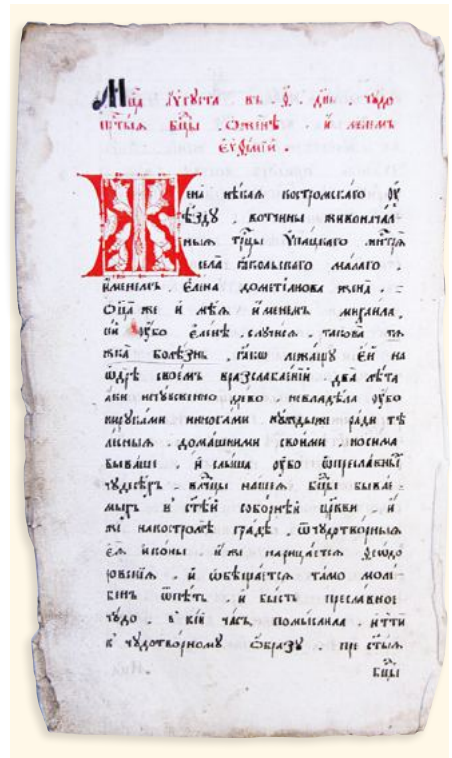 Мц҃а а҆́ѵгꙋста въ ѳ҃ дн҃ь чꙋдо
прⷭ҇тыѧ бц҃ы ѡ҆женѣ и҆ мꙋжѣ
Жена̀ нѣ́каѧ костромска́го ᲂу҆
ѣ́здꙋ вотчины живонача́л
ныѧ трⷪ҇цы ѵ҆па́цкаго
села̀ ма́лаго
и҆́менемъ є҆ле́на дометїа́нова жена̀
ѻ҆ц҃а же и҆ мꙋ́жа и҆́менемъ михаи́ла
се́й ᲂу҆́бо є҆ле́нѣ слꙋчи́сѧ такова̀ тѧ
жка̀ болѣ́знь ꙗ҆́кѡ лежа́щꙋ є҆́й на
ѻ҆дрѣ̀ свое́мъ вразслабле́нїи два̀ лѣ́та
а҆́ки нечꙋ́вственно дре́во невладѣ́ла ᲂу҆́бо
нирꙋка́ми ниногами нꙋжды́же ра́ди тѣ
ле́сныѧ дома́шними свои́ми носи́ма
быва́ше и҆ слы́ша ᲂу҆́бо ѡ҆пресла́вныхъ
чꙋдесѣ́хъ влⷣчцы на́шеѧ бц҃ы быва́е
мыхъ в ст҃е́й собо́рнѣй цр҃кви и҆́
же накостромѣ̀ гра́дѣ ѿчꙋдотво́рныѧ
є҆ѧ̀ и҆ко́ны и҆́же нарица́етсѧ ѳео́до
ровскїѧ и҆ ѡ҆бѣща́етсѧ та́мо моле́
бенъ ѿпѣ́ть и҆ бы́сть пресла́вное
чꙋ́до в кі́й ча́съ помы́слила и҆ттѝ
к чꙋдотво́рномꙋ ѡ҆́бразꙋ пре ст҃ы́ѧ
бц҃ы